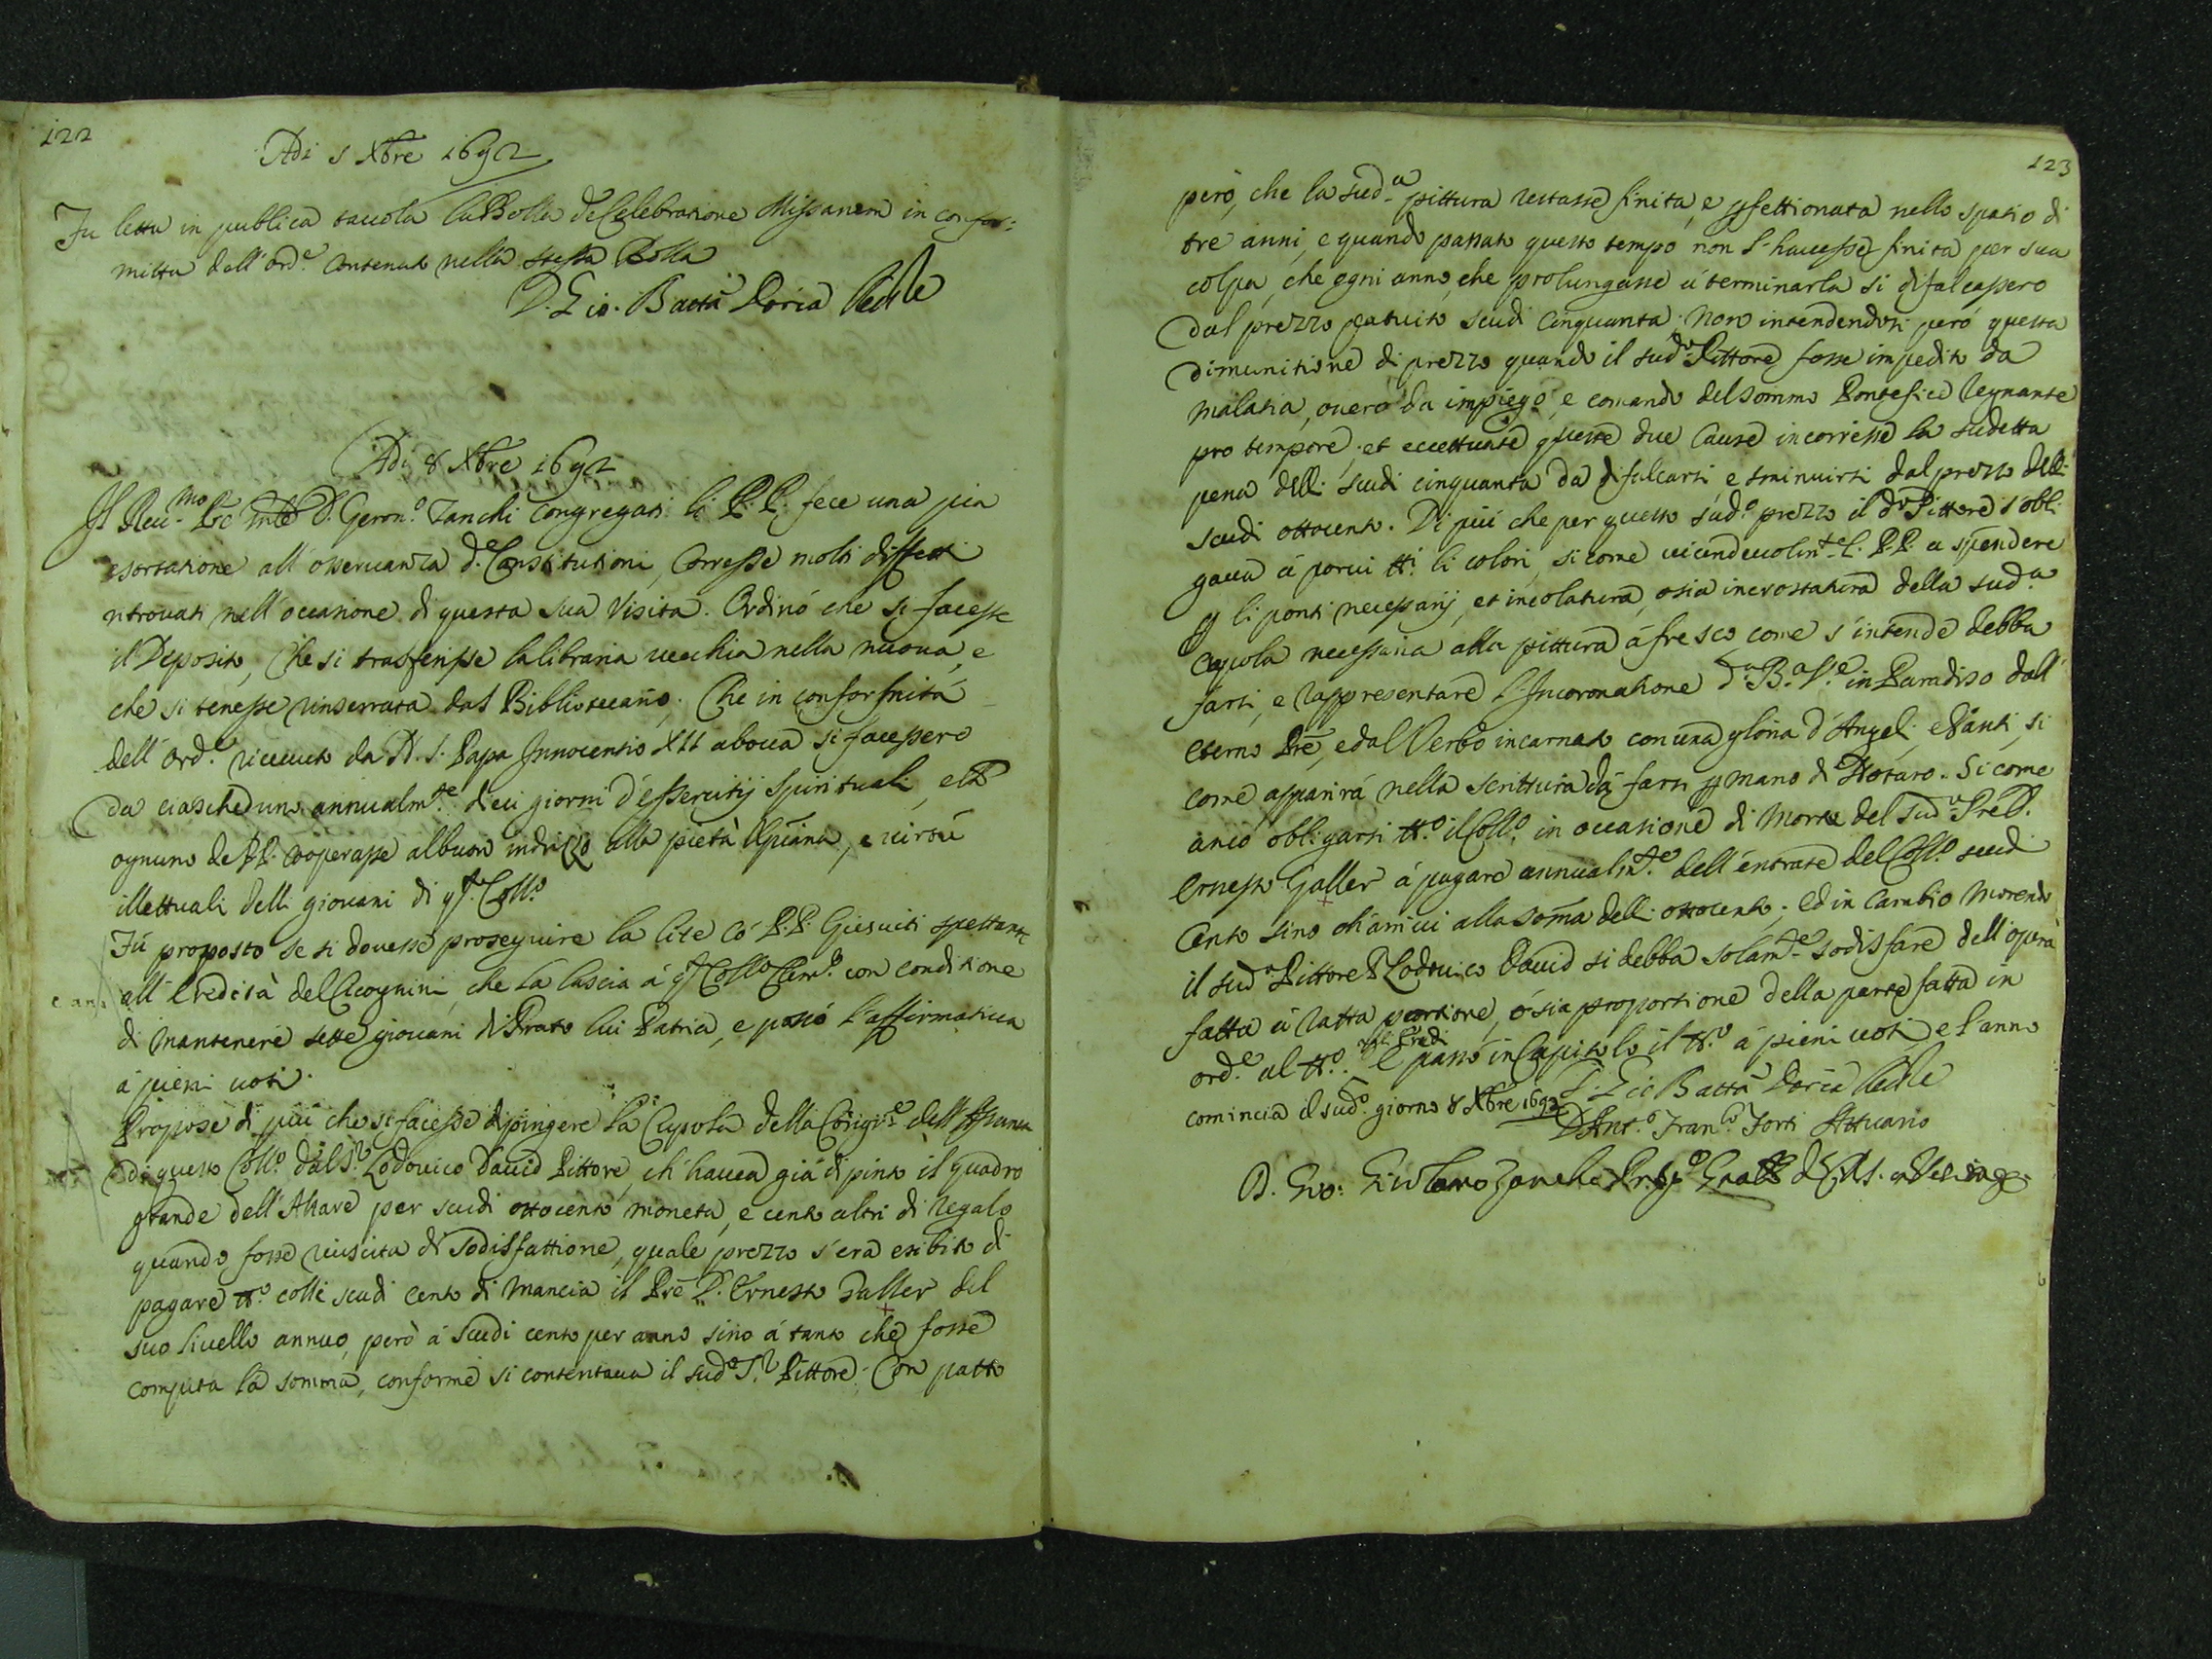 122
Adi 1 Xbre 1692
Fu letta in publica tavola la Bolla de Celebratione Missarum in confor:
mitta dell'ord.e contenuto nella stessa Bolla
D. Gio. Batta Doria Rettle
Adi 8 Xbre 1692
Il Reu.mo Pre D. Geron.o Zanchi congregati li P.P. fece una pia
esortatione all'osseruanza d.e Constitutioni, Corresse molti diffetti
ritrouati nell'occasione di questa sua Visita. Ordinó che si facesse
il Deposito, Che si trasferisse la libraria uecchia nella nuoua, e
che si tenesse rinserrata dal Bibliotecario. Che in conformità
dell'ord.e riceuuto da N. S. Papa Innocentio XII a bocca si facessero
da ciascheduno annualm.te dieci giorni d'essercitij spirituali, e che
ognuno de P.P. cooperasse al buon indrizzo alla pietà Xpiana, e uirtù
illettuali delli giouani di q.to Coll.o
Fù proposto se si douesse proseguire la lite có P.P. Giesuiti spettante
all'Eredità del Cicognini, che la lascia á q.to Collo Clem.o con conditione
di mantenere sette giouani di Prato lui Patria, e passó l'affirmatiua
á pieni uoti.
Propose di più che si facesse dipingere la Cupola della Congr.e dell'Assunta
di questo Coll.o dal S.r Lodouico Dauid Pittore, ch'hauea giá dipinto il quadro
grande dell'Altare per scudi ottocento moneta, e cento altri di regalo
quando fosse riuscita di sodisfattione, quale prezzo s'era esibito di
pagare tt.o colli scudi cento di mancia il Pre D. Ernesto Galler del
suo liuello annuo, però á scudi cento per anno sino á tanto che fosse
compita la somma, conforme si contentaua il sud.o S.r Pittore. Con patto
123
però, che la sud.a pittura restasse finita, e pfettionata nello spatio di
tre anni, e quando passato questo tempo non l'hauesse finita per sua
colpa, che ogni anno, che prolungasse á terminarla si difalcassero
dal prezzo patuito scudi cinquanta. Non intendendosi peró questa
dimunitione di prezzo quando il sud.o Pittore fosse impedito da
malatia, ouero da impiego, e comando del sommo Pontefice regnante
pro tempore, et eccettuate queste due cause incorresse la sudetta
pena delli scudi cinquanta da difalcarsi, e sminuirsi dal prezzo delli
scudi ottocento. Di più che per questo sud.o prezzo il d.o Pittore s'obli
gaua á porui tti li colori, si come uicendeuolm.te l. P.P. a spendere
p li ponti necessarij, et incolatura, osia incrostatura della sud.a
Cupola necessaria alla pittura á fresco, come s'intende debba
farsi, e rappresentare l'Incoronatione d.a B.a V.e in Paradiso dall'
eterno Pre, e dal Verbo incarnato con una gloria d'Angeli, e Santi, si
come apparirá nella scrittura da farsi p mano di Notaro. Si come
anco obligarsi tt.o il Coll.o in occasione di morte del sud.o Pre D.
Ernesto Galler á pagare annualm.te dell'entrate del Coll.o scudi
Cento sino ch'arriui alla soma delli ottocento; ed in Cambio morendo
il sud.o Pittore Lodouico Dauid si debba solam.te sodisfare dell'opera
fatta á ratta portione, ó sia proportione della parte fatta in
ord.e al tt.o agli Eredi. E passò in Capitolo il tt.o á pieni uoti, e l'anno
comincia il sud.o giorno 8 Xbre 1692
D. Gio Batta Doria Rettle
D. Ant.o Fran.co Forti Attuario
D. Gio: Girolamo Zanchi Prep.o Gnale